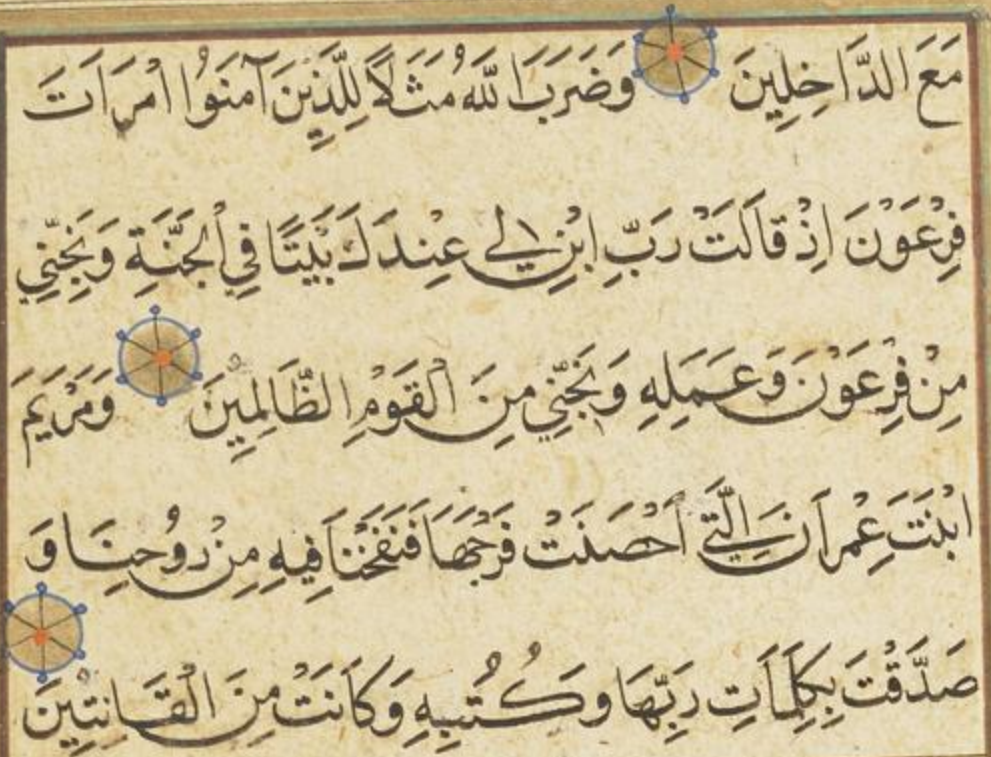 مَعَ الدَّاخِلِينَ وَضَرَبَ اللَّهُ مَثَلًا لِلَّذِينَ آمَنُوا امْرَاَتَ
فِرْعَوْنَ اِذْ قَالَتْ رَبِّ ابْنِ لِي عِنْدَكَ بَيْتًا فِي الْجَنَّةِ وَنَجِّنِي
مِنْ فِرْعَوْنَ وَعَمَلِهِ وَنَجِّنِي مِنَ الْقَوْمِ الظَّالِمِينَ وَمَرْيَمَ
ابْنَتَ عِمْرَانَ الَّتِي اَحْصَنَتْ فَرْجَهَا فَنَفَخْنَا فِيهِ مِنْ رُوحِنَا وَ
صَدَّقَتْ بِكَلِمَاتِ رَبِّهَا وَكُتُبِهِ وَكَانَتْ مِنَ الْقَانِتِينَ